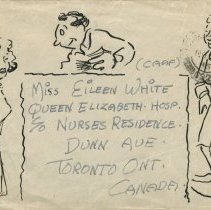 (CAAF)
Miss Eileen White
Queen Elizabeth. Hosp.
c/o Nurses Residence.
Dunn Ave.
Toronto Ont.
Canada.